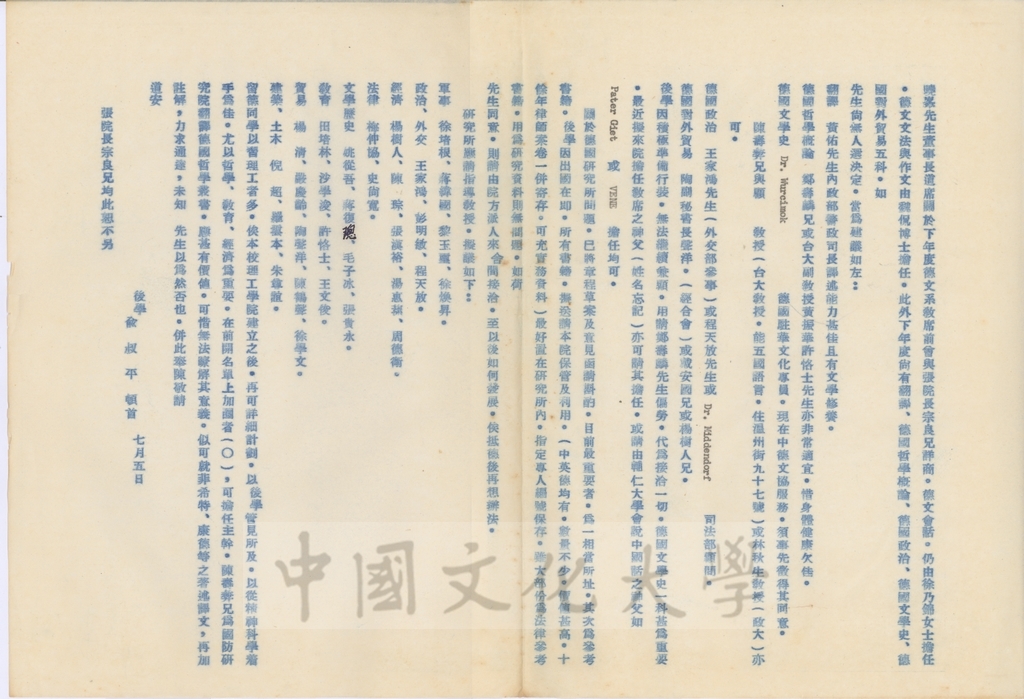 曉峯先生董事長道席關於下年度德文系教席前會與張院長宗良兄詳商。德文會話。仍由徐乃錦女士擔任
。德文文法與作文由魏倪博士擔任。此外下年度尚有翻譯、德國哲學概論、德國政治、德國文學史、德
國對外貿易五科。如
先生尚無人選決定。當為建議如左：
翻譯 黃佑先生內政部警政司長譯述能力甚佳且有文學修養。
德國哲學概論 鄭壽麟兄或台大副教授黃援華許恪士先生亦非常適宜。惜身體健康欠佳。
德國文學史 德國駐華文化專員。現在中德文協服務。須事先徵得其同意。
陳壽蒼兄與顧 教授（台大教授。能五國語言。住溫州街九十七號）或林秋生教授（政大）亦
可。
德國政治 王家鴻先生（外交部參事）或程天放先生或 Dr. Middendorf 司法部顧問。
德國對外貿易 陶聲洋（經合會）或戴安國兄或楊樹人兄。
後學因積極準備行裝。無法繼續兼顧。用請鄭壽麟先生偏勞。代為接洽一切。德國文學史一科甚為重要
。最近擬來院擔任教席之神父（姓名忘記）亦可請其擔任。或請由輔仁大學會說中國話之神父如
Pater Giet 或 VENE 擔任均可。
關於德國研究所問題。已將章程草案及意見函請斟酌。目前最重要者。為一相當所址。其次為參考
書籍。後學因出國在即。所有書籍。擬送請本院保管及利用。（中英德均有。數量不少。價值甚高。十
餘年律師案卷一併寄存。可充實務資料）最好置在研究所內。指定專人編號保存。雖大部份為法律參考
書籍。用為研究資料則無問題。如荷
先生同意。則請由院方派人來會間接洽。至以後如何發展。俟抵德後再想辦法。
研究所應請指導教授。擬議如下：
軍事 徐培根、蔣緯國、黎玉璽、徐煥昇。
政治、外交 王家鴻、彭明敏、程天放。
經濟 楊樹人、陳 琮、張漢裕、湯惠蓀、周德偉。
法律 梅仲協、史尚寬。
文學歷史 姚從吾、蔣復璁、毛子水、張貴永。
教育 田培林、沙學浚、許恪士、王文俊。
貿易 楊 清、嚴慶齡、陶聲洋、陳鶴聲、徐學文。
建築、土木 倪 超、羅雲本、朱尊誼。
留德同學以習理工者多。俟本校理工學院建立之後。再可詳細計劃。以後學管見所及。以從精神科學着
手為佳。尤以哲學、教育、經濟為重要。在前開名單上加圈者（〇），可擔任主幹。陳壽蒼兄為國防研
究院翻譯德國哲學叢書。廳甚有價值。可惜無法瞭解其意義。似可就菲希特、康德等之著述譯文，再加
註解，力求通達，未知 先生以為然否也。併此奉陳敬請
道安
張院長宗良兄均此恕不另
後學 俞叔平 頓首 七月五日
中國文化大學